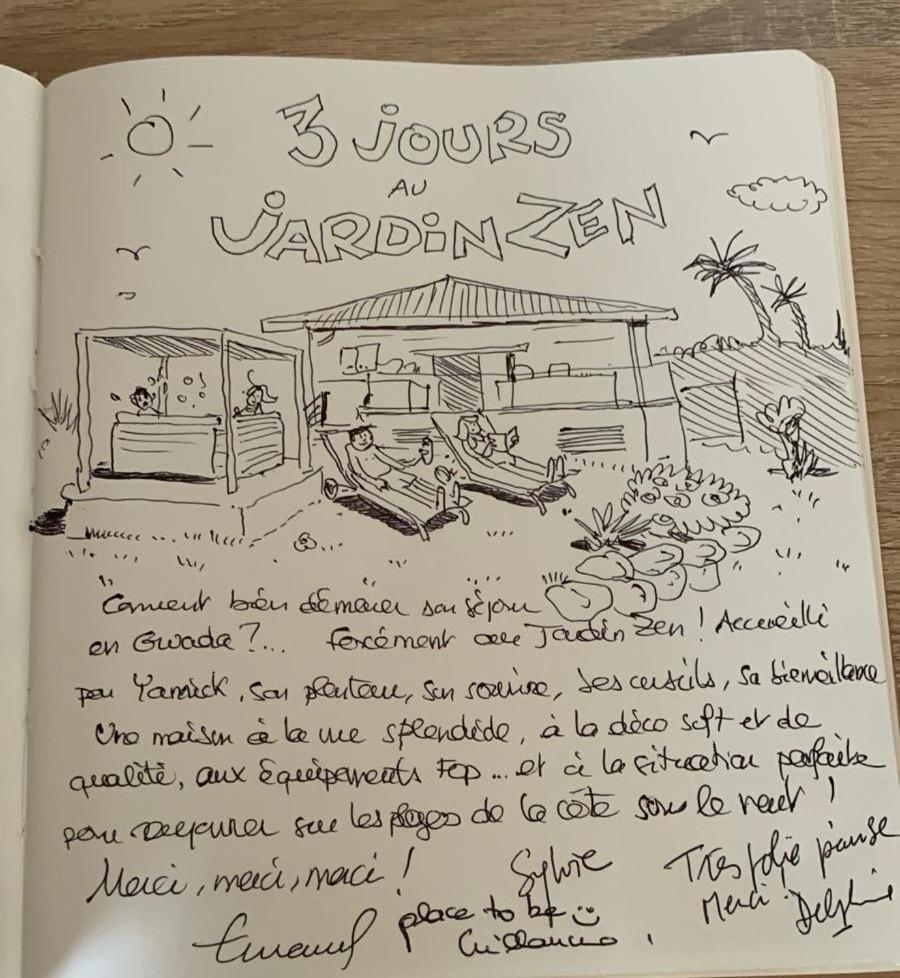 3 JOURS
AU
JARDIN ZEN
Comment bien démarrer son séjour
en Gwada ?... forcément au Jardin Zen ! Accueilli
par Yannick, son planteur, son sourire, ses conseils, sa bienveillance
Une maison à la vue splendide, à la déco soft et de
qualité, aux équipements top ... et à la situation parfaite
pour sur les plages de la côte sous le vent !
Merci, merci, merci !
Sylvie
Très jolie pause
Merci
Delphine
place to be